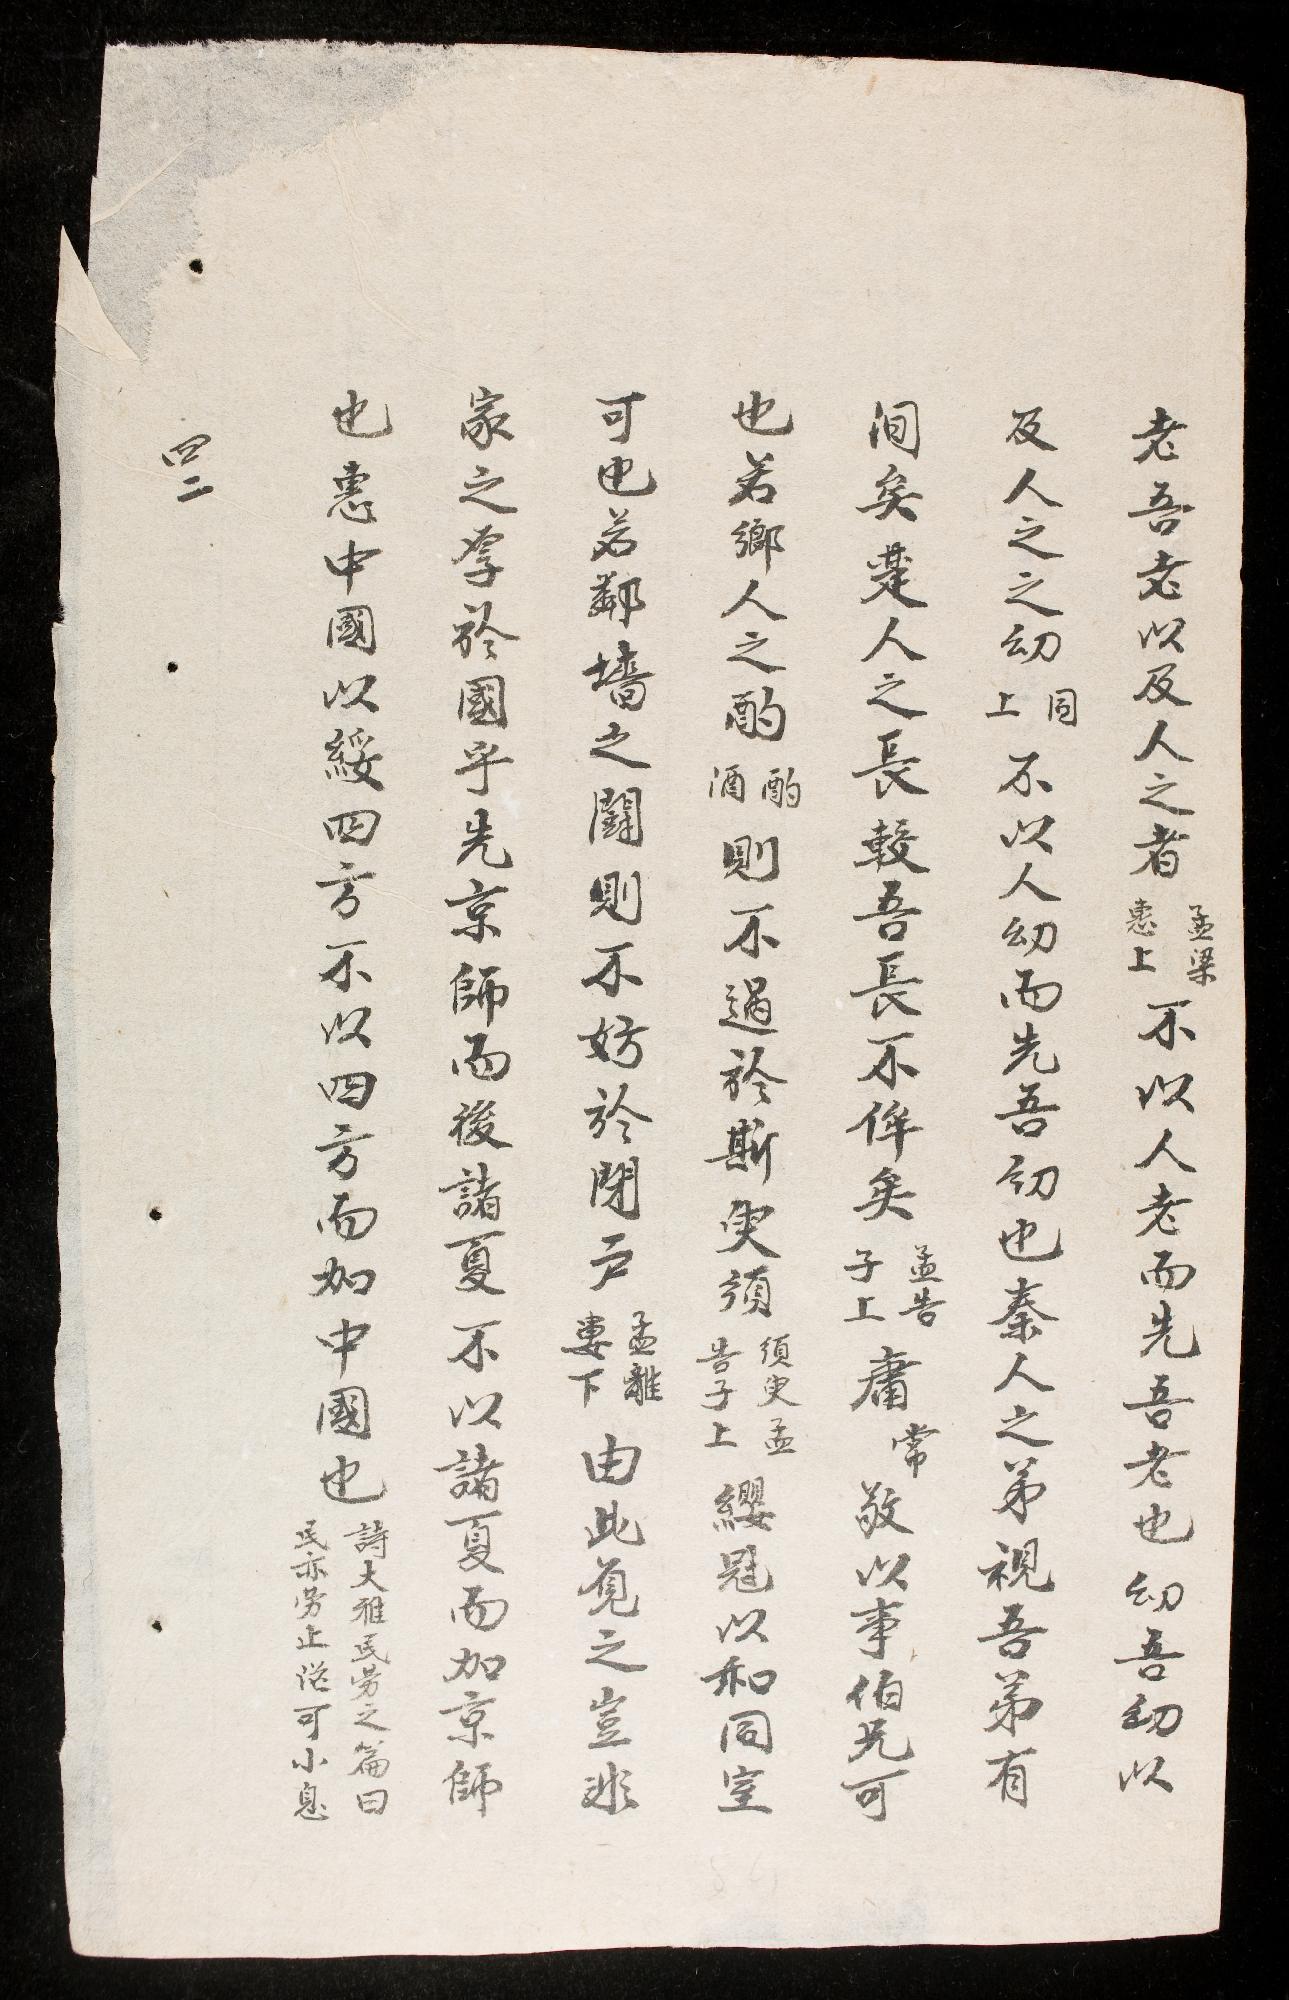 老吾老以及人之者孟梁惠上不以人老而先吾老也幼吾幼以
及人之之幼同上不以人幼而先吾幼也秦人之弟視吾弟有
泂矣楚人之長較吾長不侔矣孟告子上庸常敬以事伯兄可
也若鄉人之酌酌酒則不過於斯臾須須臾孟告子上纓冠以和同室
可也若鄰墻之鬭則不妨於閉户孟離婁下由此覓之豈非
家之孝於國乎先京師而後諸夏不以諸夏而加京師
也惠中國以綏四方不以四方而加中國也詩大雅民勞之篇曰民亦勞止汔可小息
四二